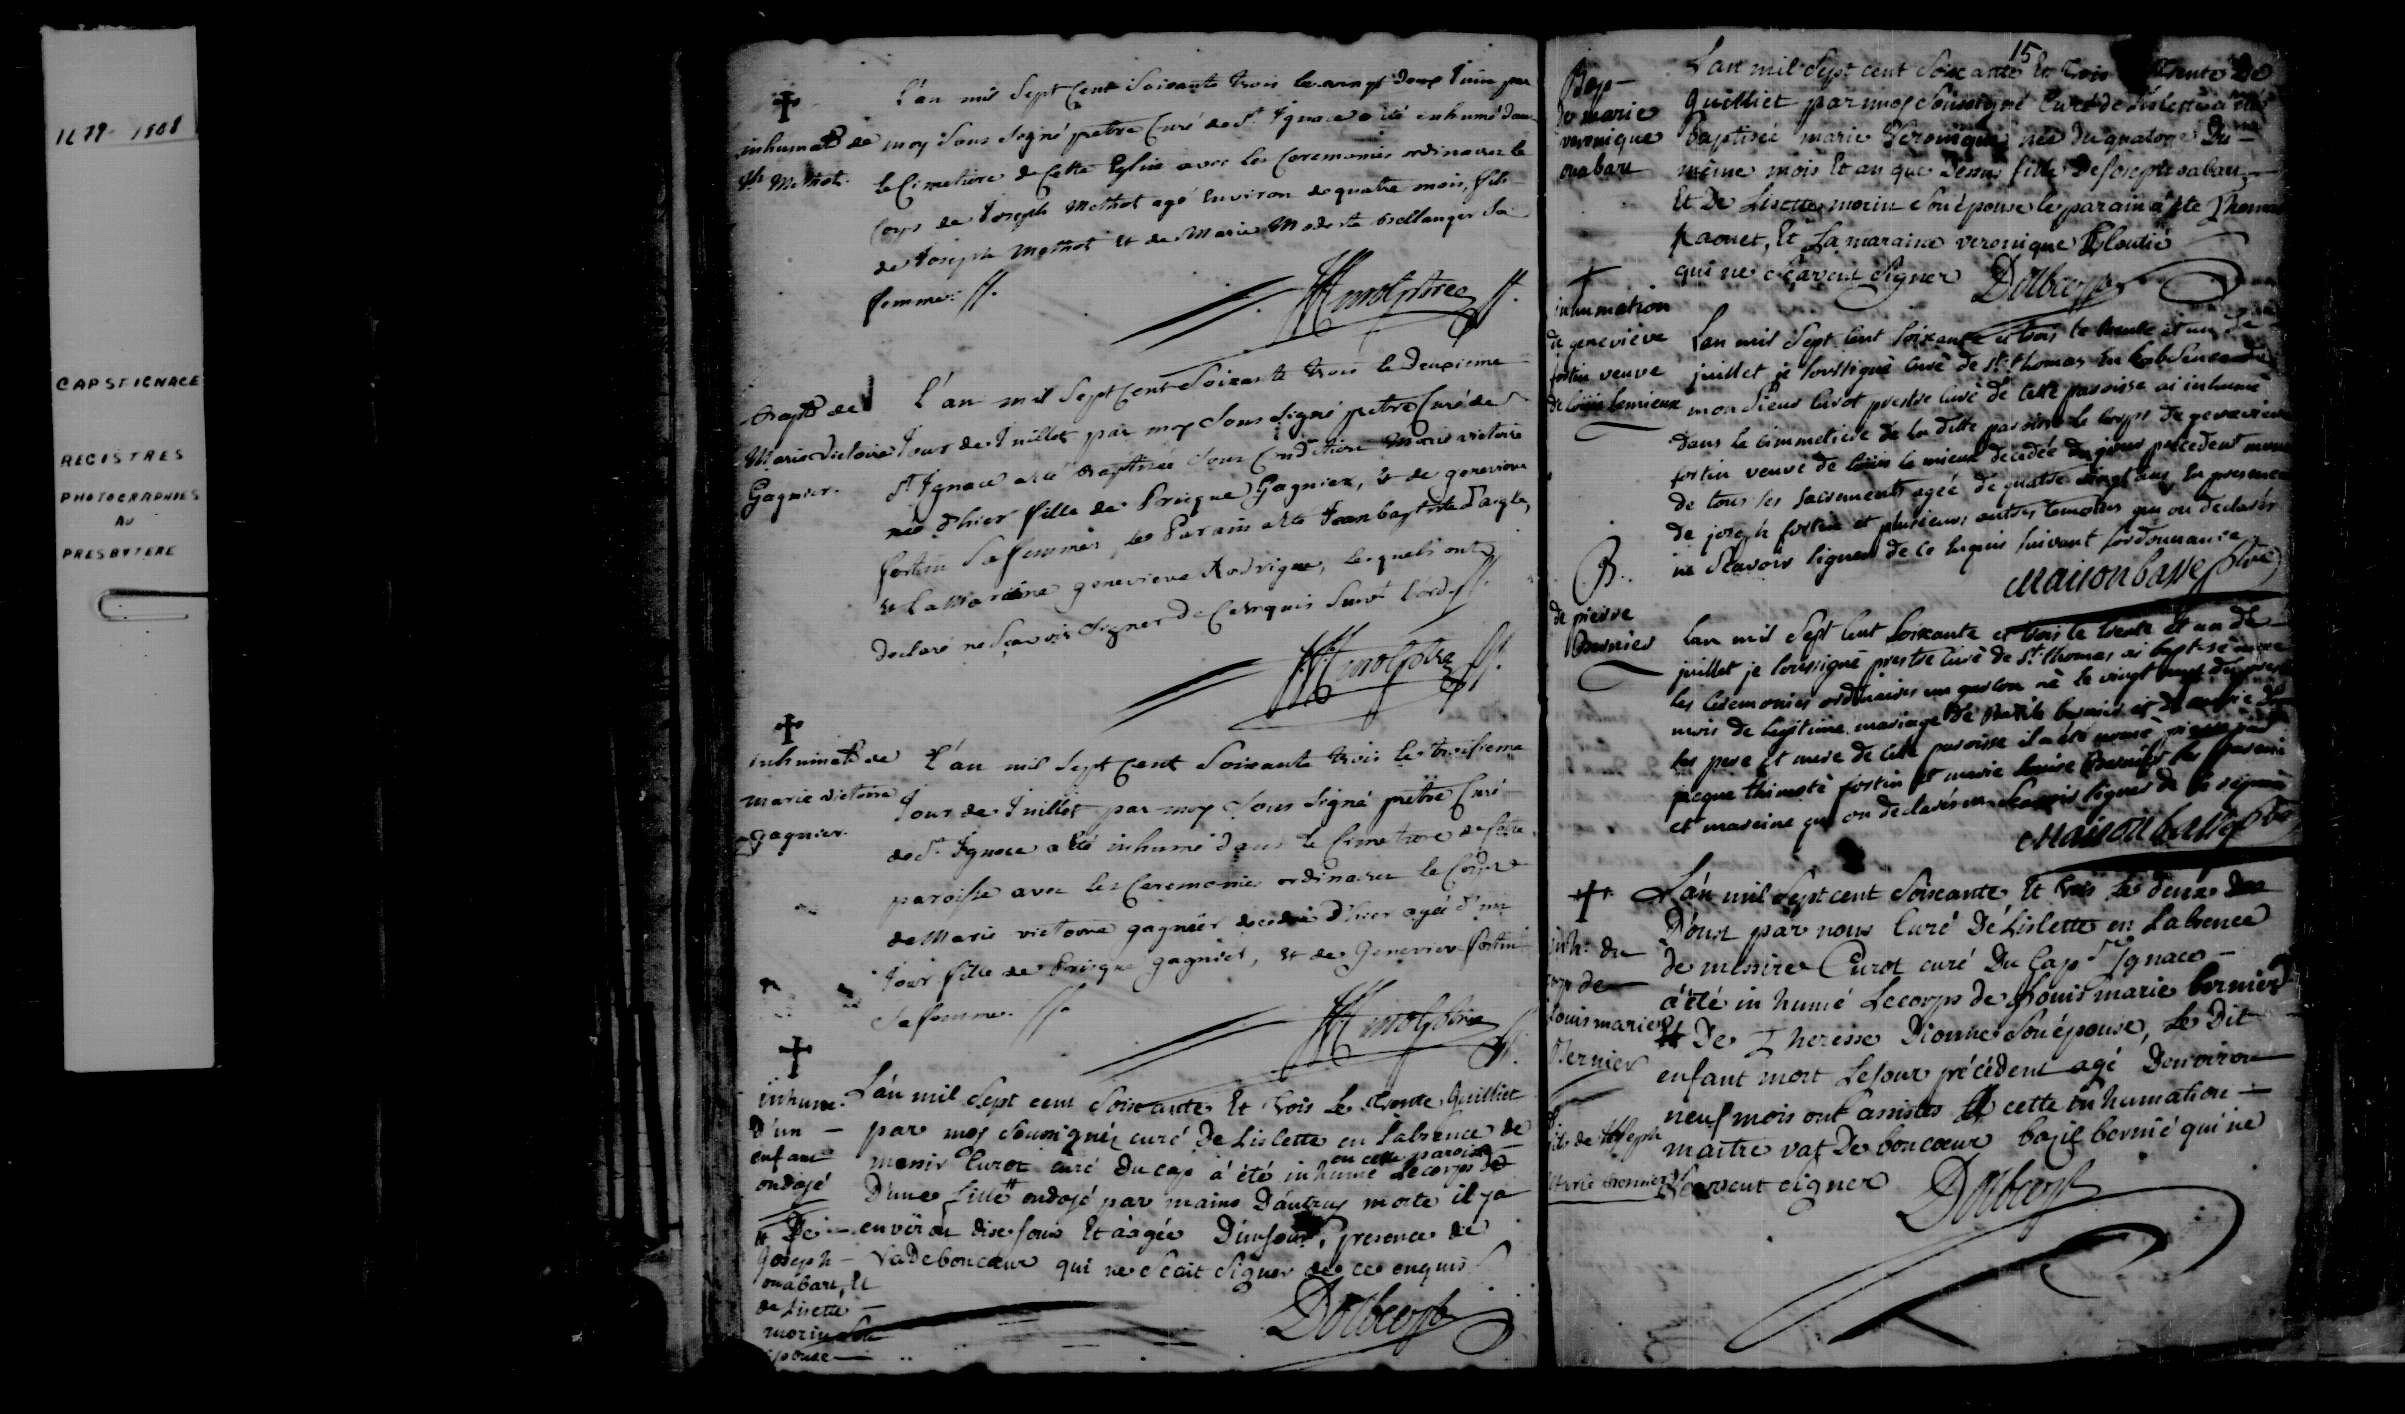 1679-1808
CAP ST IGNACE
REGISTRES
PHOTOGRAPHIES
AU
PRESBYTERE
L'an mil Sept Cent Soixante trois le vingt deux Juin par
inhumat de moy Sous Signé prêtre Curé de St Ignace a été inhumé dans
Jh Methot. le Cimetiere de Cette Eglise avec les Ceremonies ordinaires le
Corps de Joseph Methot agé Environ de quatre mois, fils
de Joseph Methot et de Marie Modeste bellanger Sa
femme
L'an mil Sept Cent Soixante trois le Deuxieme
Bapt de
Marie Victoire Jour de Juillet par moy Sous Signé prêtre Curé de
Gagnier. St Ignace a été Baptisée Sous Condition Marie victoire
née d'hier fille de Prisque Gagnier, et de genevieve
fortin Sa femme, le Parain a été Jean baptiste Daigle,
et La Maraine genevieve Rodrigue, lesquels ont
declaré ne Sçavoir Signer De Ce Enquis Suivt L'ord
inhumat de L'an mil Sept Cent Soixante trois le troisieme
marie victoire Jour de Juillet par moy Sous Signé prêtre Curé
gagnier. de St Ignace a été inhumé dans le Cimetiere de Cette
paroisse avec les Ceremonies ordinaires le Corps
de Marie victoire gagnier decedée d'hier agée d'un
Jour fille de Prisque gagnier, et de Genevieve fortin
Sa femme.
inhum. L'an mil Sept cent Soixante Et trois Le trente Juilliet
D'un par moy Soussigné curé De Lislette en L'absence de
enfant messir Curot curé du cap a été inhumé en cette paroisse Le corps
ondoyé D'une fille ondoyé par mains D'autruy morte il y a
De environ dix Jours Et agée D'un Jour, presence de
Joseph Vadeboncœur qui ne Scait Signer de ce enquis
ouabart, Et
de Lisette
morin Son
epouse
Dolbecp
15
Bap L'an mil Sept cent Soixante Et trois Trente De
de marie Juilliet par moy Soussigné Curé de Lislette a été
veronique baptisée marie Veronique née du quatorze Du
ouabart même mois Et an que Dessus fille De Joseph
Et De Lisette morin Son épouse le parain a été Thomas
paouet, Et La maraine veronique Cloutié
qui ne Scavent Signer Dolbecp
inhumation
de geneviève L'an mil Sept Cent Soixante et trois le trente et un de
fortin veuve juillet je soussigné curé de St thomas en L'absence de
de louis lemieux monsieur Curot prestre curé de cette paroisse ai inhumé
dans le cimmetiere de la ditte paroisse le corps de genevieve
fortin veuve de louis le mieux decedée du jour precedent munie
de tous les sacrements agée de quatre vingt ans, En presence
de joseph fortin et plusieurs autres temoins qui ont declarés
ne sçavoir signer de ce enquis suivant l'ordonnance
Maisonbasse ptre
B.
de pierre L'an mil Sept Cent Soixante et trois le trente et un de
Bernier juillet je soussigné prestre curé de St thomas ai baptisé avec
les ceremonies ordinaires un garcon né le vingt
mois de legitime mariage de Basile bernier et de marie
les pere et mere de cette paroisse il a été nomé pierre par
jacque thimoté fortin et marie louise Bernier les parein
et mareine qui on declarés ne scavoir signer de ce
Maisonbasse ptre
L'an mil Sept cent Soixante, Et trois Le deux
D'oust par nous Curé De Lislette en L'absence
inh: du de messire Curot curé Du Cap St Ignace
corp de a été inhumé Le corps de Louis marie bernier
Louis marie Et De Therese Dionne Son épouse, Le Dit
Bernier enfant mort Le Jour précédent agé D'environ
neuf mois ont assistés a cette inhumation
fils de Joseph maitre vat De boncœur bazil bernié qui ne
Marie Bernier Scavent signer Dolbecp